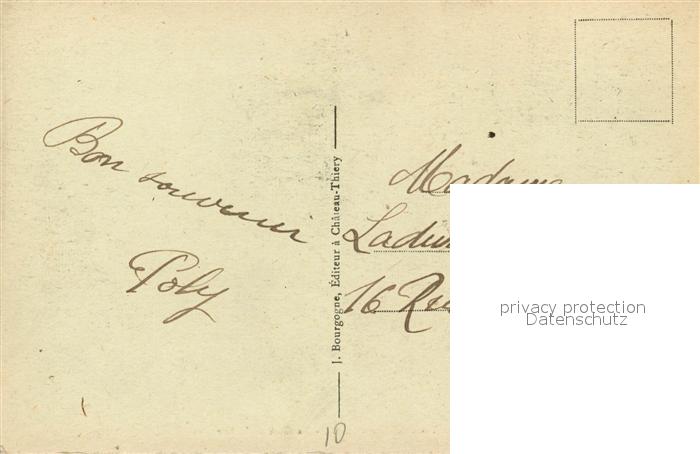 Bon souvenir
Poly
J. Bourgogne, Éditeur à Château-Thiery
Madame
16 Rue
10
privacy protection
Datenschutz